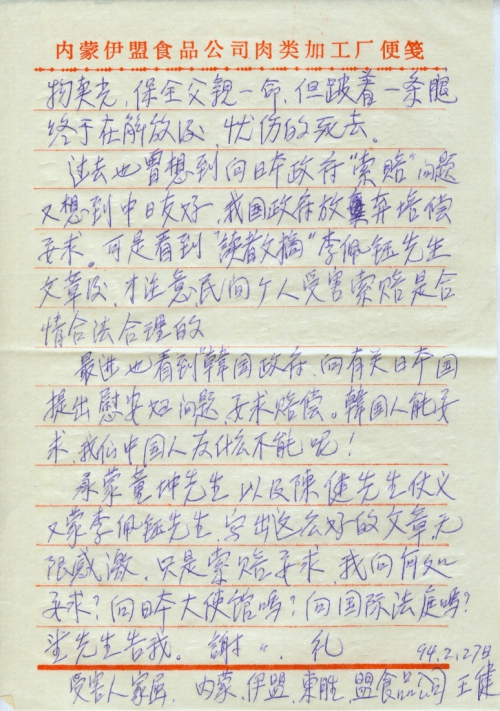 内蒙伊盟食品公司肉类加工厂便笺
物卖光，保全父親一命，但跛着一条腿
终于在解放后，忧伤的死去。
过去也曾想到向日本政府"索赔"问题
又想到中日友好，我国政府放弃培偿
要求。可是看到"读者文摘"李佩钰先生
文章后，才注意民间个人受害索赔是合
情合法合理的
最进也看到韓国政府，向有关日本国
提出慰安妇问题，要求赔偿。韓国人能要
求，我们中国人为什么不能呢！
承蒙董坤先生以及陳健先生仗义
又蒙李佩钰先生，写出这么好的文章，无
限感激，只是索赔要求，我向何处
要求？向日本大使馆嗎？向国际法庭嗎？
望先生告我。謝〃．礼
94.2.27日
受害人家属，内蒙，伊盟，東胜，盟食品公司 王健